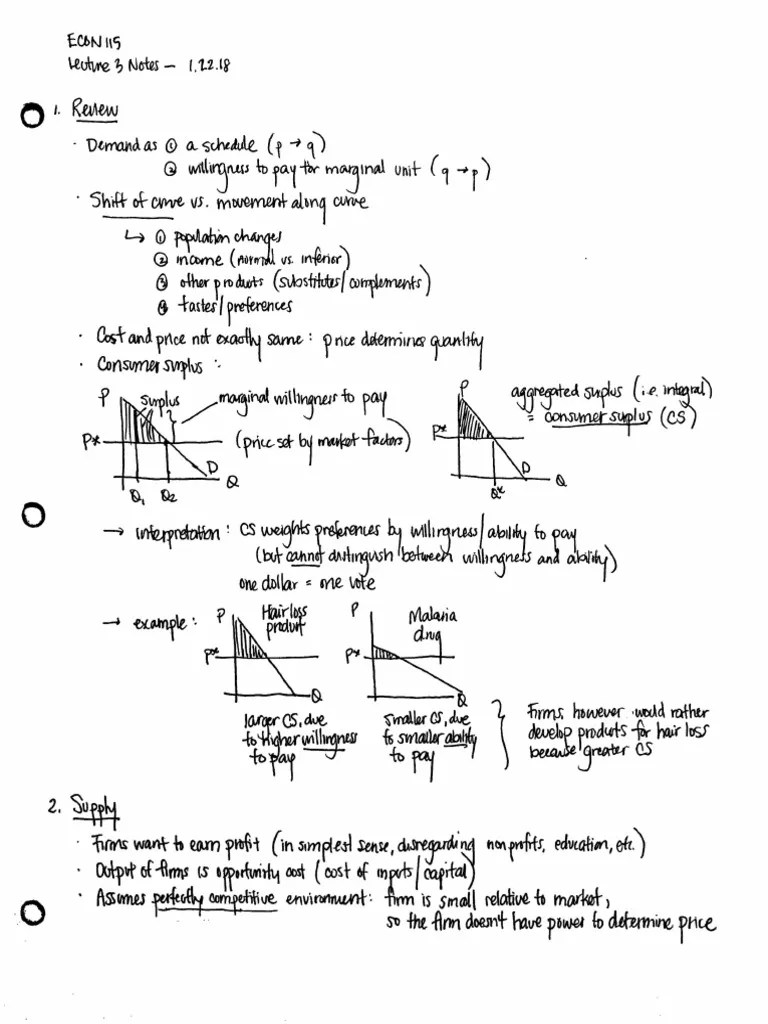 ECON 115
Lecture 3 Notes — 1.22.18
1. Review
· Demand as ① a schedule (p → q)
② willingness to pay for marginal unit (q → p)
· Shift of curve vs. movement along curve
↳ ① population changes
② income (normal vs. inferior)
③ other products (substitutes/complements)
④ tastes/preferences
· Cost and price not exactly same: price determines quantity
· Consumer surplus:
P
surplus
marginal willingness to pay
P*
(price set by market factors)
D
Q
Q1 Q2
P
aggregated surplus (i.e. integral)
= consumer surplus (CS)
P*
D
Q
Q*
→ interpretation: CS weights preferences by willingness/ability to pay
(but cannot distinguish between willingness and ability)
one dollar = one vote
→ example:
P
Hair loss
product
P*
Q
larger CS, due
to higher willingness
to pay
P
Malaria
drug
P*
Q
smaller CS, due
to smaller ability
to pay
Firms, however would rather
develop products for hair loss
because greater CS
2. Supply
· Firms want to earn profit (in simplest sense, disregarding nonprofits, education, etc.)
· Output of firms is opportunity cost (cost of inputs/capital)
· Assumes perfectly competitive environment: firm is small relative to market,
so the firm doesn't have power to determine price